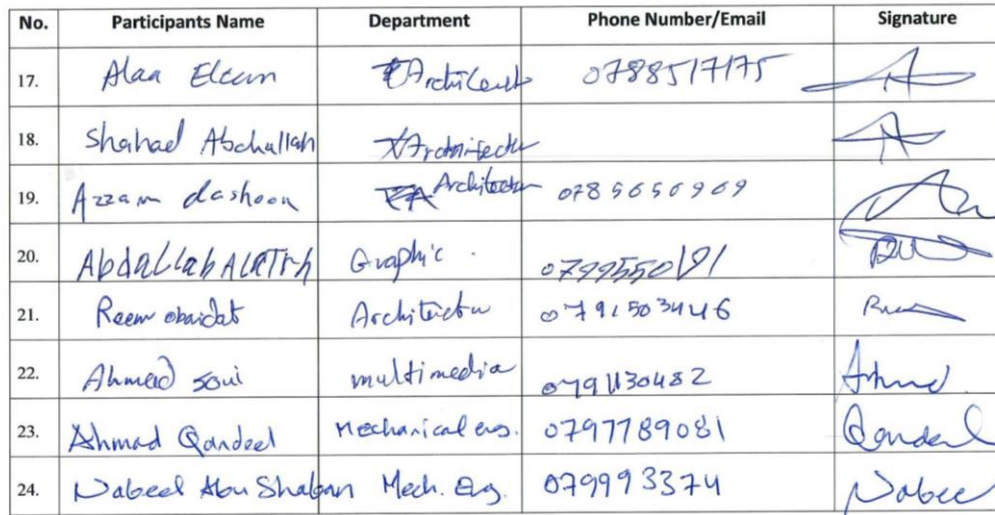 No. Participants Name Department Phone Number/Email Signature
17. Alaa Eleen Architect 0788517175
18. Shahad Abdullah Architectu
19. Azzam dashoon Architectu 0785656969
20. Abdallah AlATrh Graphic.
21. Reem obaidat Architectu 0791503446
22. Ahmed soui multimedia 0791130482 Ahmd
23. Ahmad Qandeel Mechanical eng. 0797789081 Qandeel
24. Nabeel Abu Shaban Mech. Eng. 079993374 Nabee